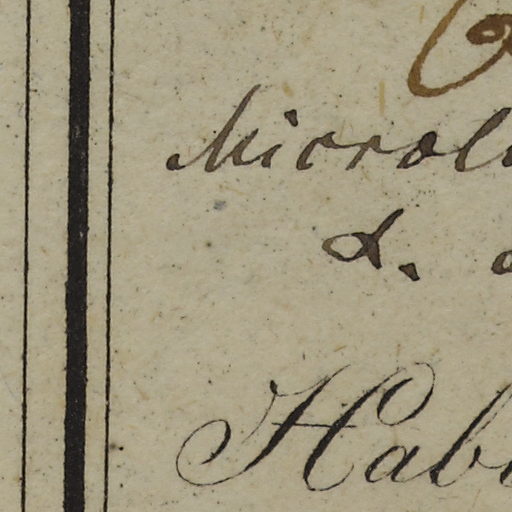 Microl
d.
Hab